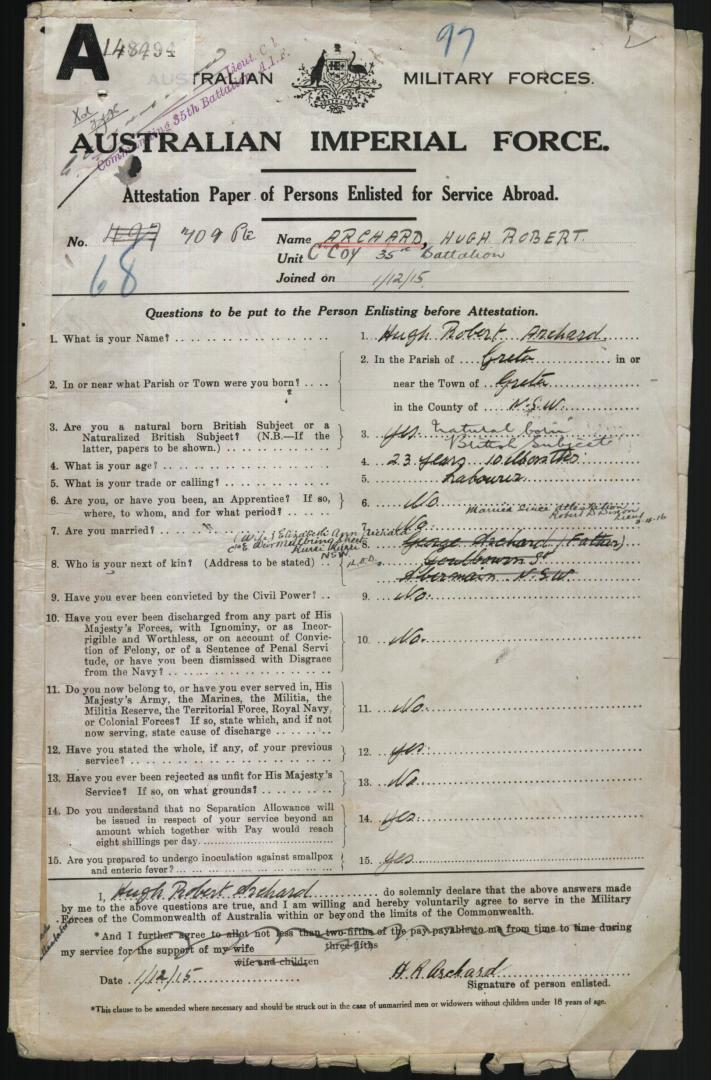 A 148494
97
Lieut. Cl.
Commanding 35th Battalion A.I.F.
AUSTRALIAN MILITARY FORCES.
AUSTRALIAN IMPERIAL FORCE.
Attestation Paper of Persons Enlisted for Service Abroad.
No. 497 709 Pte Name ARCHARD, HUGH ROBERT.
68 Unit "C" Coy 35th Battalion
Joined on 1/12/15.
Questions to be put to the Person Enlisting before Attestation.
1. What is your Name? 1. Hugh Robert Archard.
2. In or near what Parish or Town were you born? 2. In the Parish of Greta in or
near the Town of Greta
in the County of N.S.W.
3. Are you a natural born British Subject or a
Naturalized British Subject? (N.B.—If the
latter, papers to be shown.) 3. yes Natural born
British Subject
4. What is your age? 4. 23 years 10 Months
5. What is your trade or calling? 5. Labourer
6. Are you, or have you been, an Apprentice? If so,
where, to whom, and for what period? 6. No
Married since Attestation
7. Are you married? 7. No.
(Wife) Elizabeth Ann
Kurri Kurri
N.S.W.
8. Who is your next of kin? (Address to be stated) 8. George Archard (Father)
Goulbourn St
Abermain N.S.W.
9. Have you ever been convicted by the Civil Power? 9. No.
10. Have you ever been discharged from any part of His
Majesty's Forces, with Ignominy, or as Incor-
rigible and Worthless, or on account of Convic-
tion of Felony, or of a Sentence of Penal Servi
tude, or have you been dismissed with Disgrace
from the Navy? 10. No.
11. Do you now belong to, or have you ever served in, His
Majesty's Army, the Marines, the Militia, the
Militia Reserve, the Territorial Force, Royal Navy,
or Colonial Forces? If so, state which, and if not
now serving, state cause of discharge 11. No.
12. Have you stated the whole, if any, of your previous
service? 12. yes.
13. Have you ever been rejected as unfit for His Majesty's
Service? If so, on what grounds? 13. No.
14. Do you understand that no Separation Allowance will
be issued in respect of your service beyond an
amount which together with Pay would reach
eight shillings per day. 14. yes.
15. Are you prepared to undergo inoculation against smallpox
and enteric fever? 15. yes
I, Hugh Robert Archard do solemnly declare that the above answers made
by me to the above questions are true, and I am willing and hereby voluntarily agree to serve in the Military
Forces of the Commonwealth of Australia within or beyond the limits of the Commonwealth.
*And I further agree to allot not less than two-fifths of the pay payable to me from time to time during
three-fifths
my service for the support of my wife
wife and children
Date 1/12/15 H. R. Archard
Signature of person enlisted.
*This clause to be amended where necessary and should be struck out in the case of unmarried men or widowers without children under 18 years of age.